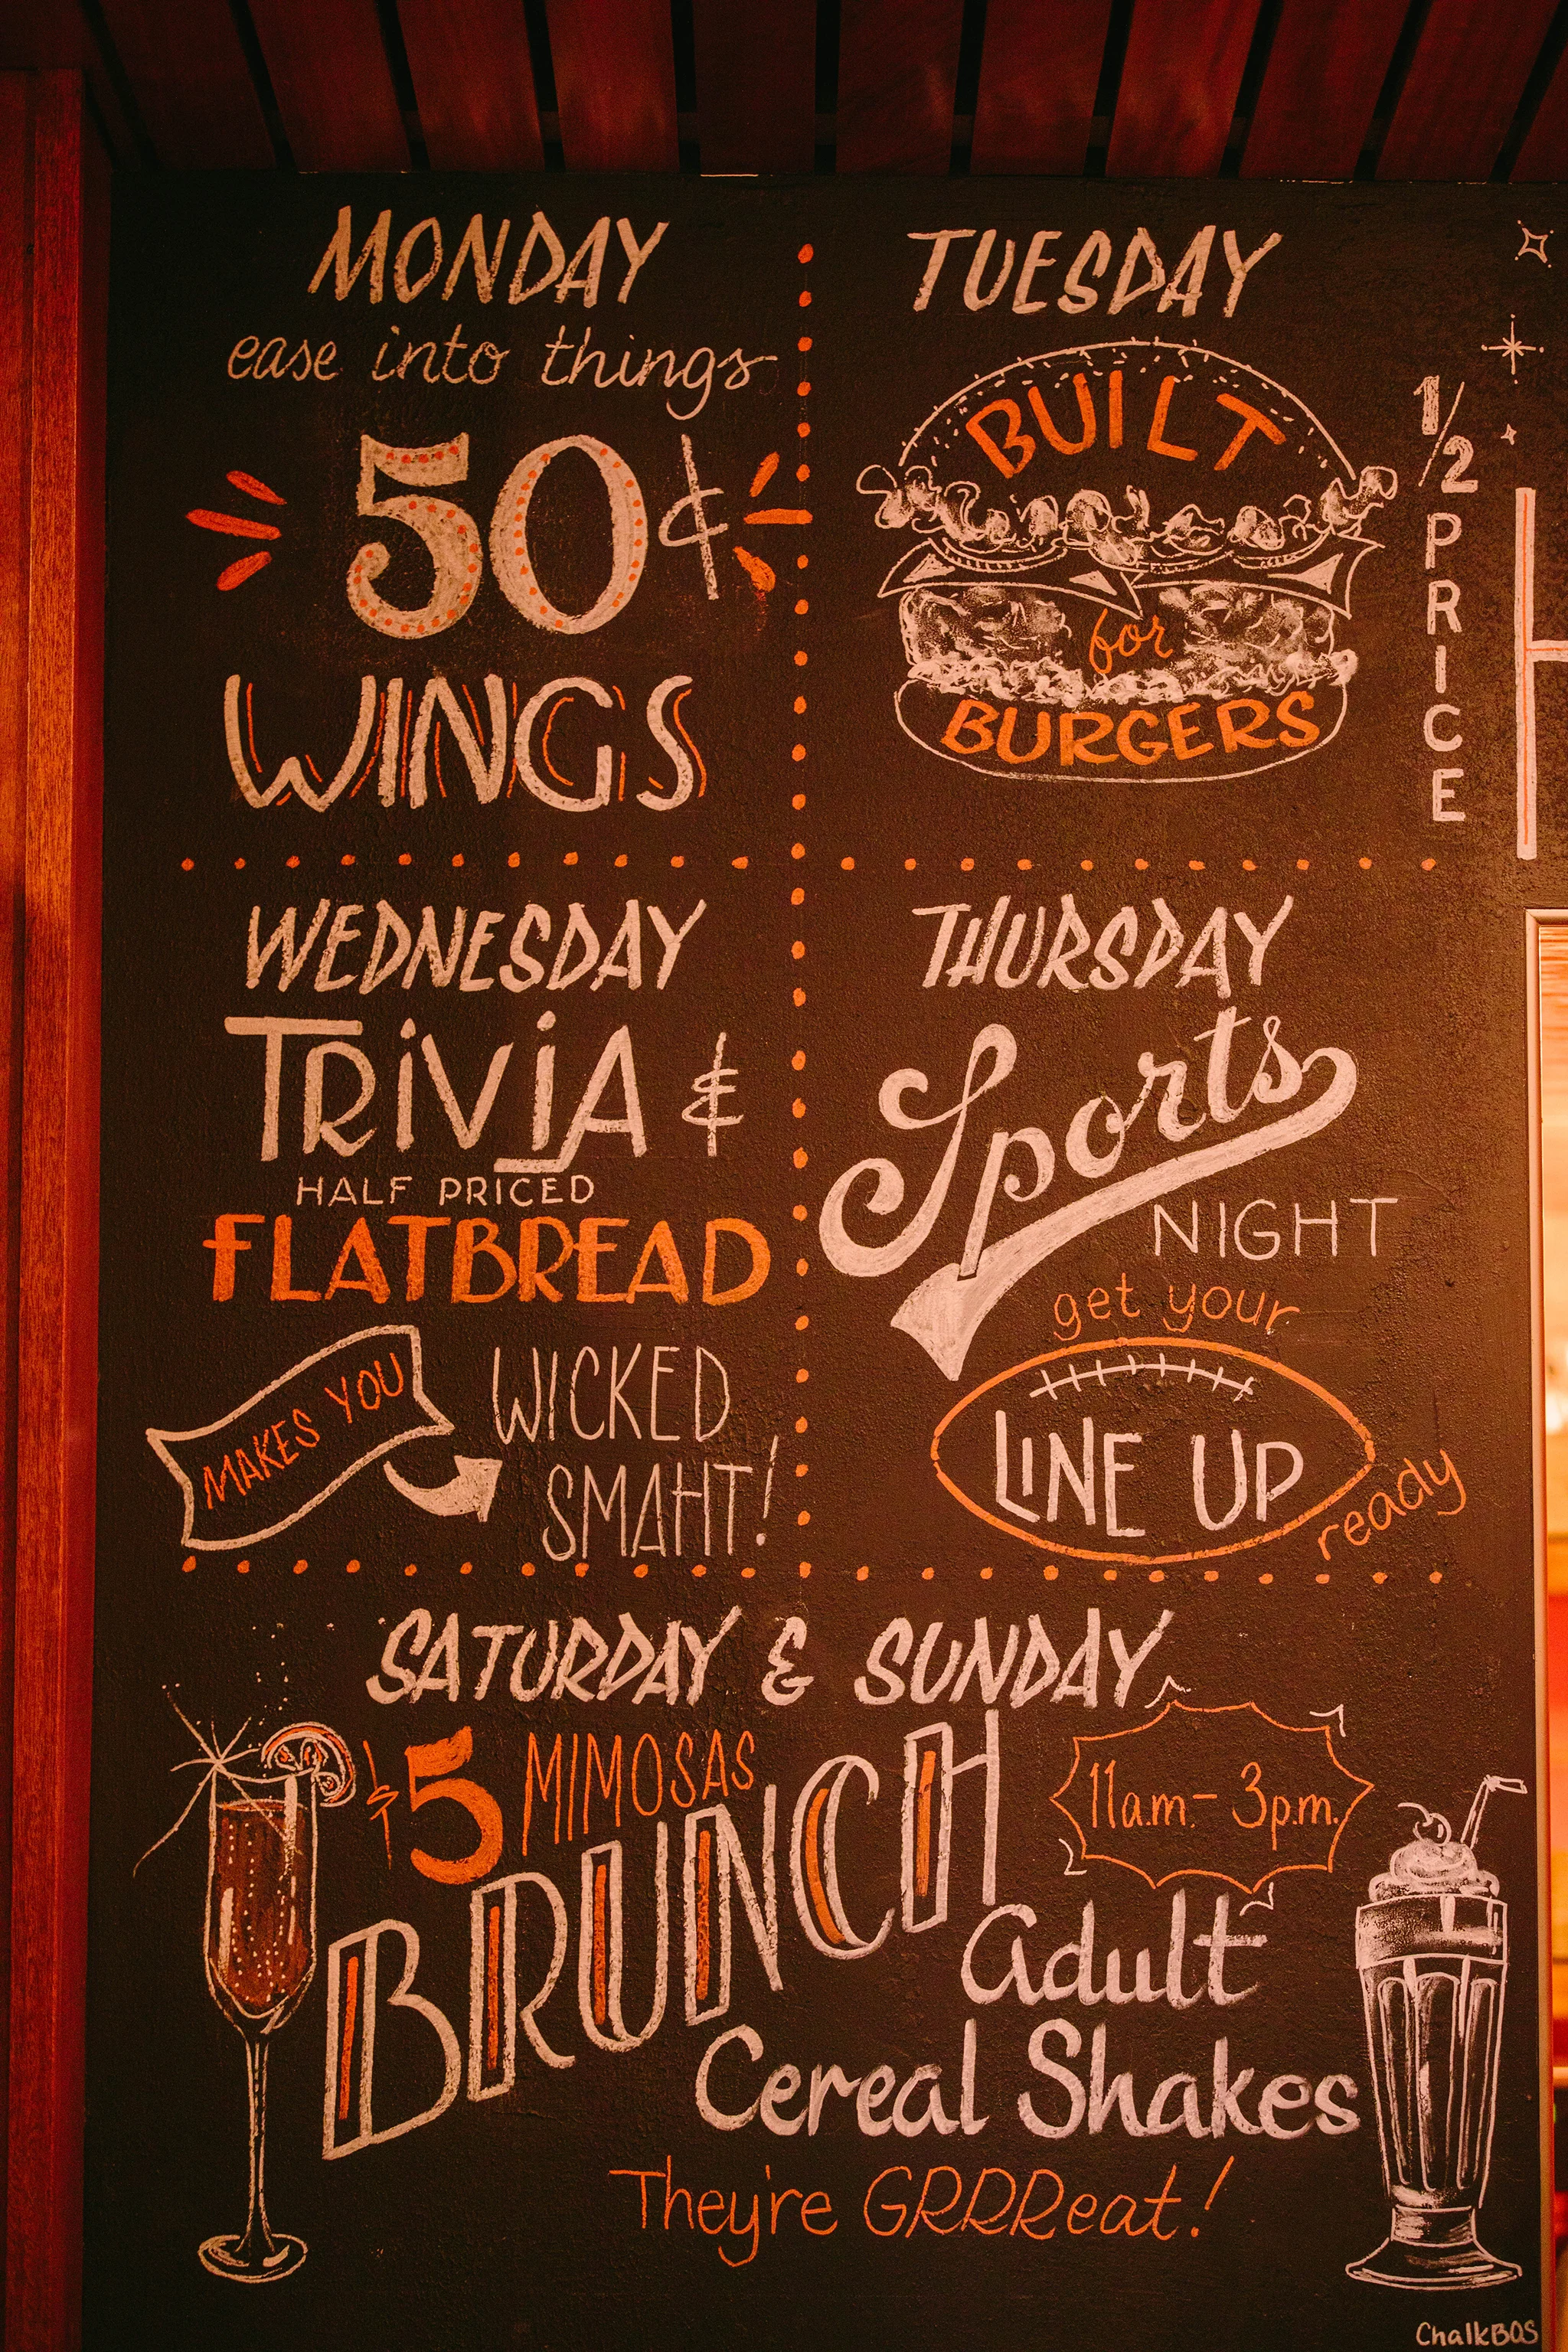 MONDAY
ease into things
50¢
WINGS
TUESDAY
BUILT
for
BURGERS
1/2 PRICE
WEDNESDAY
TRiViA &
HALF PRICED
FLATBREAD
MAKES YOU
WICKED
SMAHT!
THURSDAY
Sports
NIGHT
get your
LINE UP
ready
SATURDAY & SUNDAY
$5 MIMOSAS
BRUNCH
11a.m.- 3p.m.
Adult
Cereal Shakes
They're GRRReat!
ChalkBOS